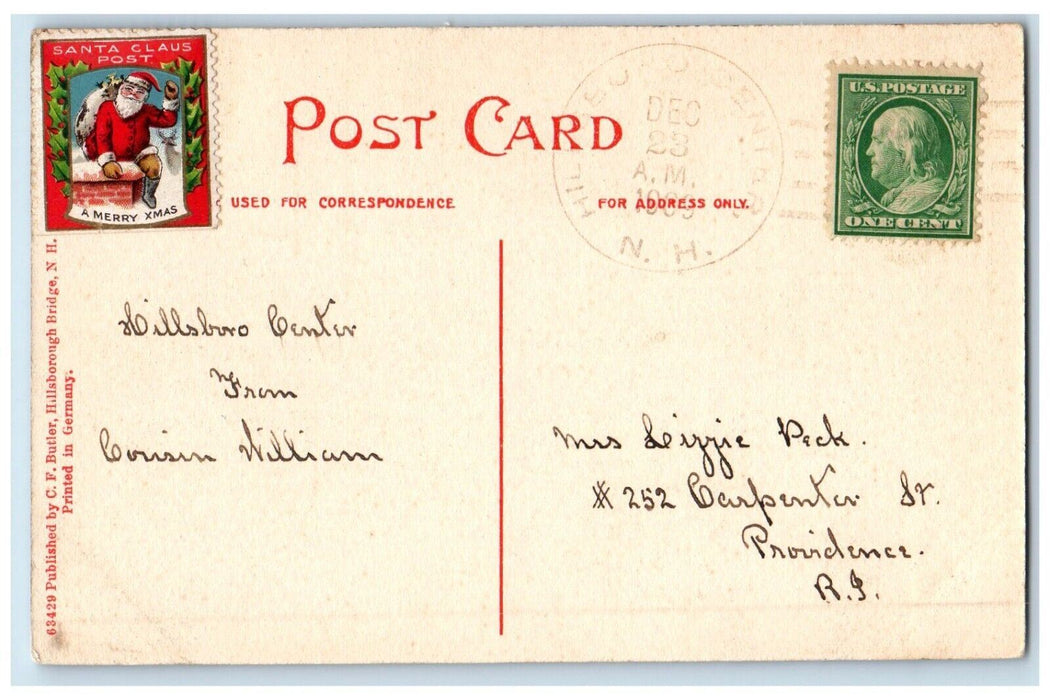 SANTA CLAUS
POST
A MERRY XMAS
POST CARD
USED FOR CORRESPONDENCE
FOR ADDRESS ONLY.
DEC
23
A.M.
N. H.
U.S. POSTAGE
ONE CENT
63429 Published by C. F. Butler, Hillsborough Bridge, N. H.
Printed in Germany.
Hillsboro Center
From
Cousin William
Mrs Lizzie Peck.
# 252 Carpenter St.
Providence.
R.I.